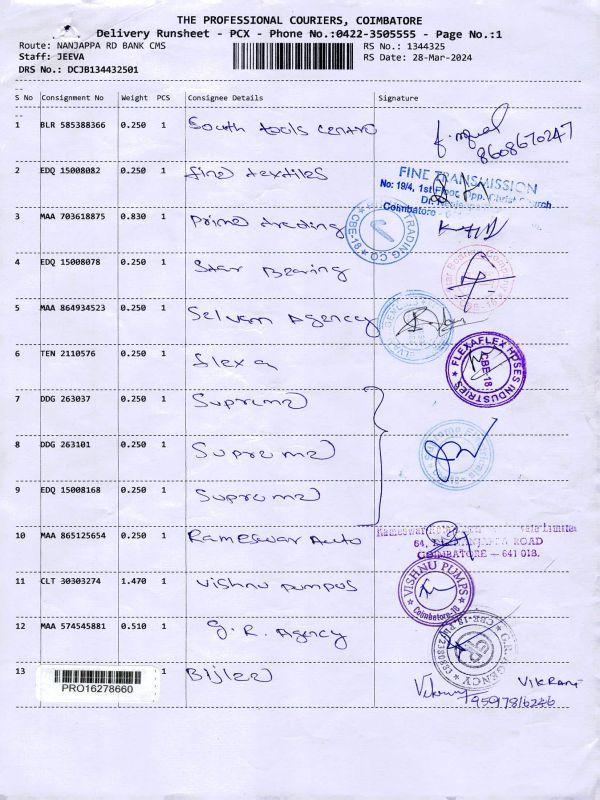 THE PROFESSIONAL COURIERS, COIMBATORE
Delivery Runsheet - PCX - Phone No.:0422-3505555 - Page No.:1
Route: NANJAPPA RD BANK CMS
RS No.: 1344325
Staff: JEEVA
RS Date: 28-Mar-2024
DRS No.: DCJB134432501
S No Consignment No Weight PCS Consignee Details Signature
1 BLR 585388366 0.250 1 South tools centre
8608670247
2 EDQ 15008082 0.250 1 fine textiles
FINE TRANSMISSION
No: 19/4, 1st Floor, Opp. Christ Church
Coimbatore -
3 MAA 703618875 0.830 1 Prime trading
TRADING CO CBE-18
4 EDQ 15008078 0.250 1 Star Bearing
5 MAA 864934523 0.250 1 Selvam Agency
6 TEN 2110576 0.250 1 flexa
FLEXAFLEX HOSES INDUSTRIES
CBE-18
7 DDG 263037 0.250 1 Supreme
8 DDG 263101 0.250 1 Supreme
9 EDQ 15008168 0.250 1 Supreme
10 MAA 865125654 0.250 1 Rameswar Auto
64, NANJAPPA ROAD
COIMBATORE - 641 018.
11 CLT 30303274 1.470 1 Vishnu pumps
VISHNU PUMPS
Coimbatore-18
12 MAA 574545881 0.510 1 G.R. Agency
G.R. AGENCY
13 PRO16278660 1 Bijlee
VIKRANT
9597816246